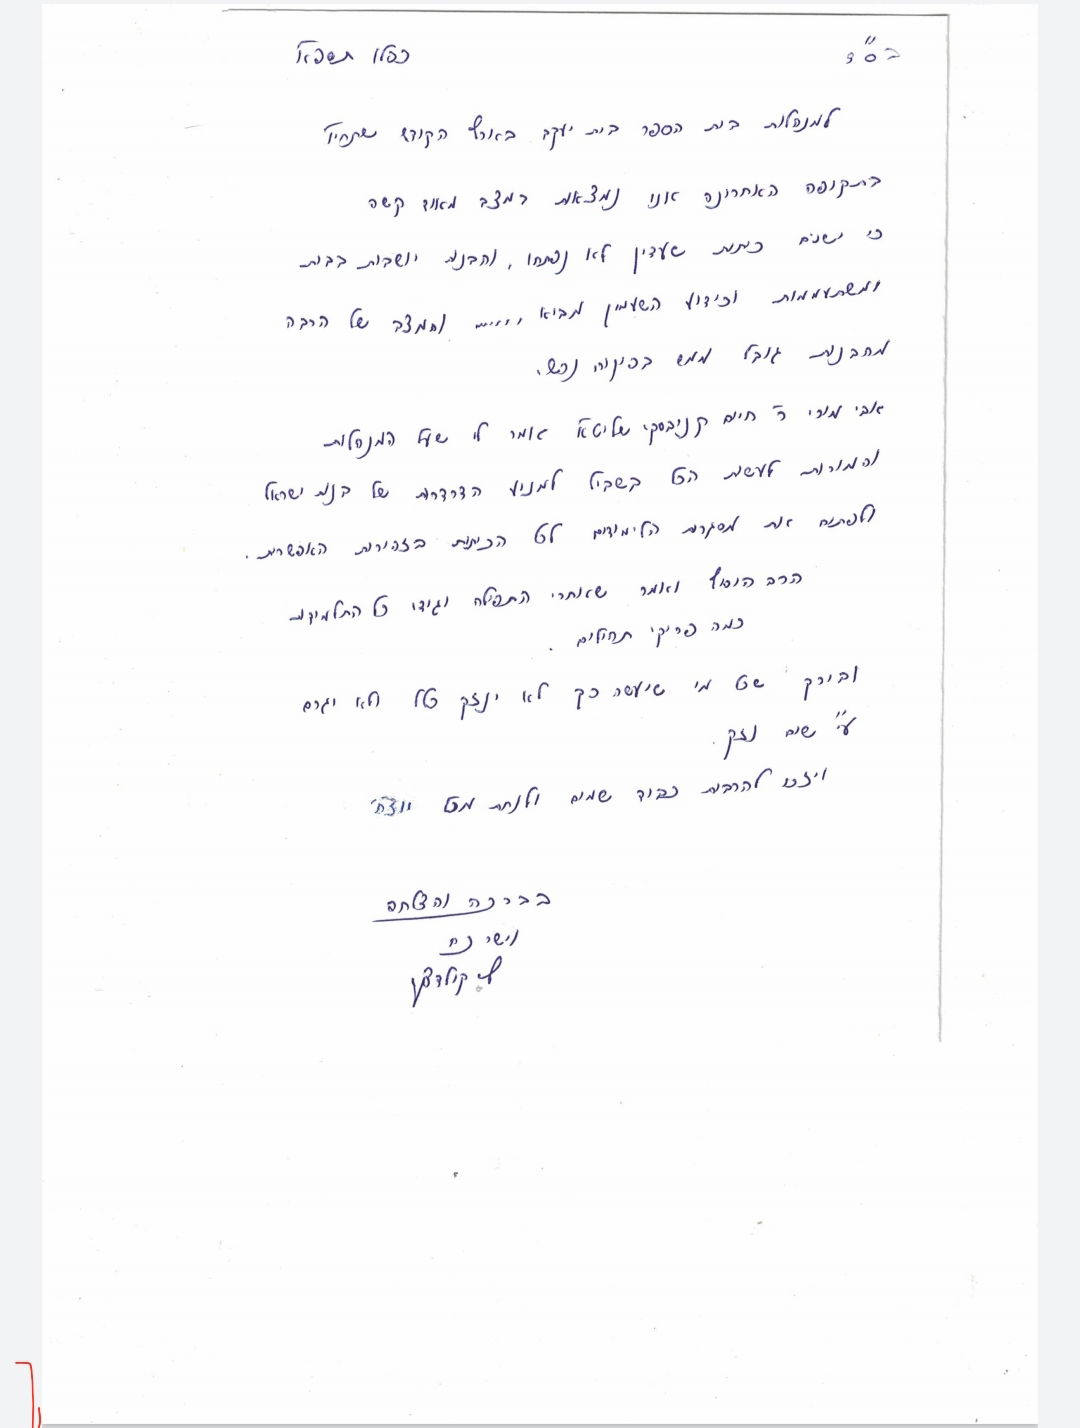 בס"ד
כסלו תשפ"א
למנהלות בית הספר בית יעקב בארץ הקודש שתחי'
בתקופה האחרונה אנו נמצאות במצב מאוד קשה
כי ישנם כיתות שעדין לא נפתחו, והבנות יושבות בבית
ומשתעממות וכידוע השעמום מביא ,,.... והמצב של הרבה
מהבנות גובל ממש בפיקוח נפש.
אבי מורי ר' חיים קניבסקי שליט"א אומר לי שעל המנהלות
והמורות לעשות הכל בשביל למנוע הדרדרות של בנות ישראל
ולפתוח את מסגרות הלימודים לכל הכיתות בזהירות האפשרית.
הרב הוסיף ואמר שאחרי התפילה יגידו כל התלמידות
כמה פריקי תהילים.
ובירך שכל מי שיעשה כך לא ינזק כלל ולא יגרם
ע"י שום נזק.
ויזכו להרבות כבוד שמים ולנחת מכל יוצ"ח
בברכה והצלחה
וישר כח
קולדצקי